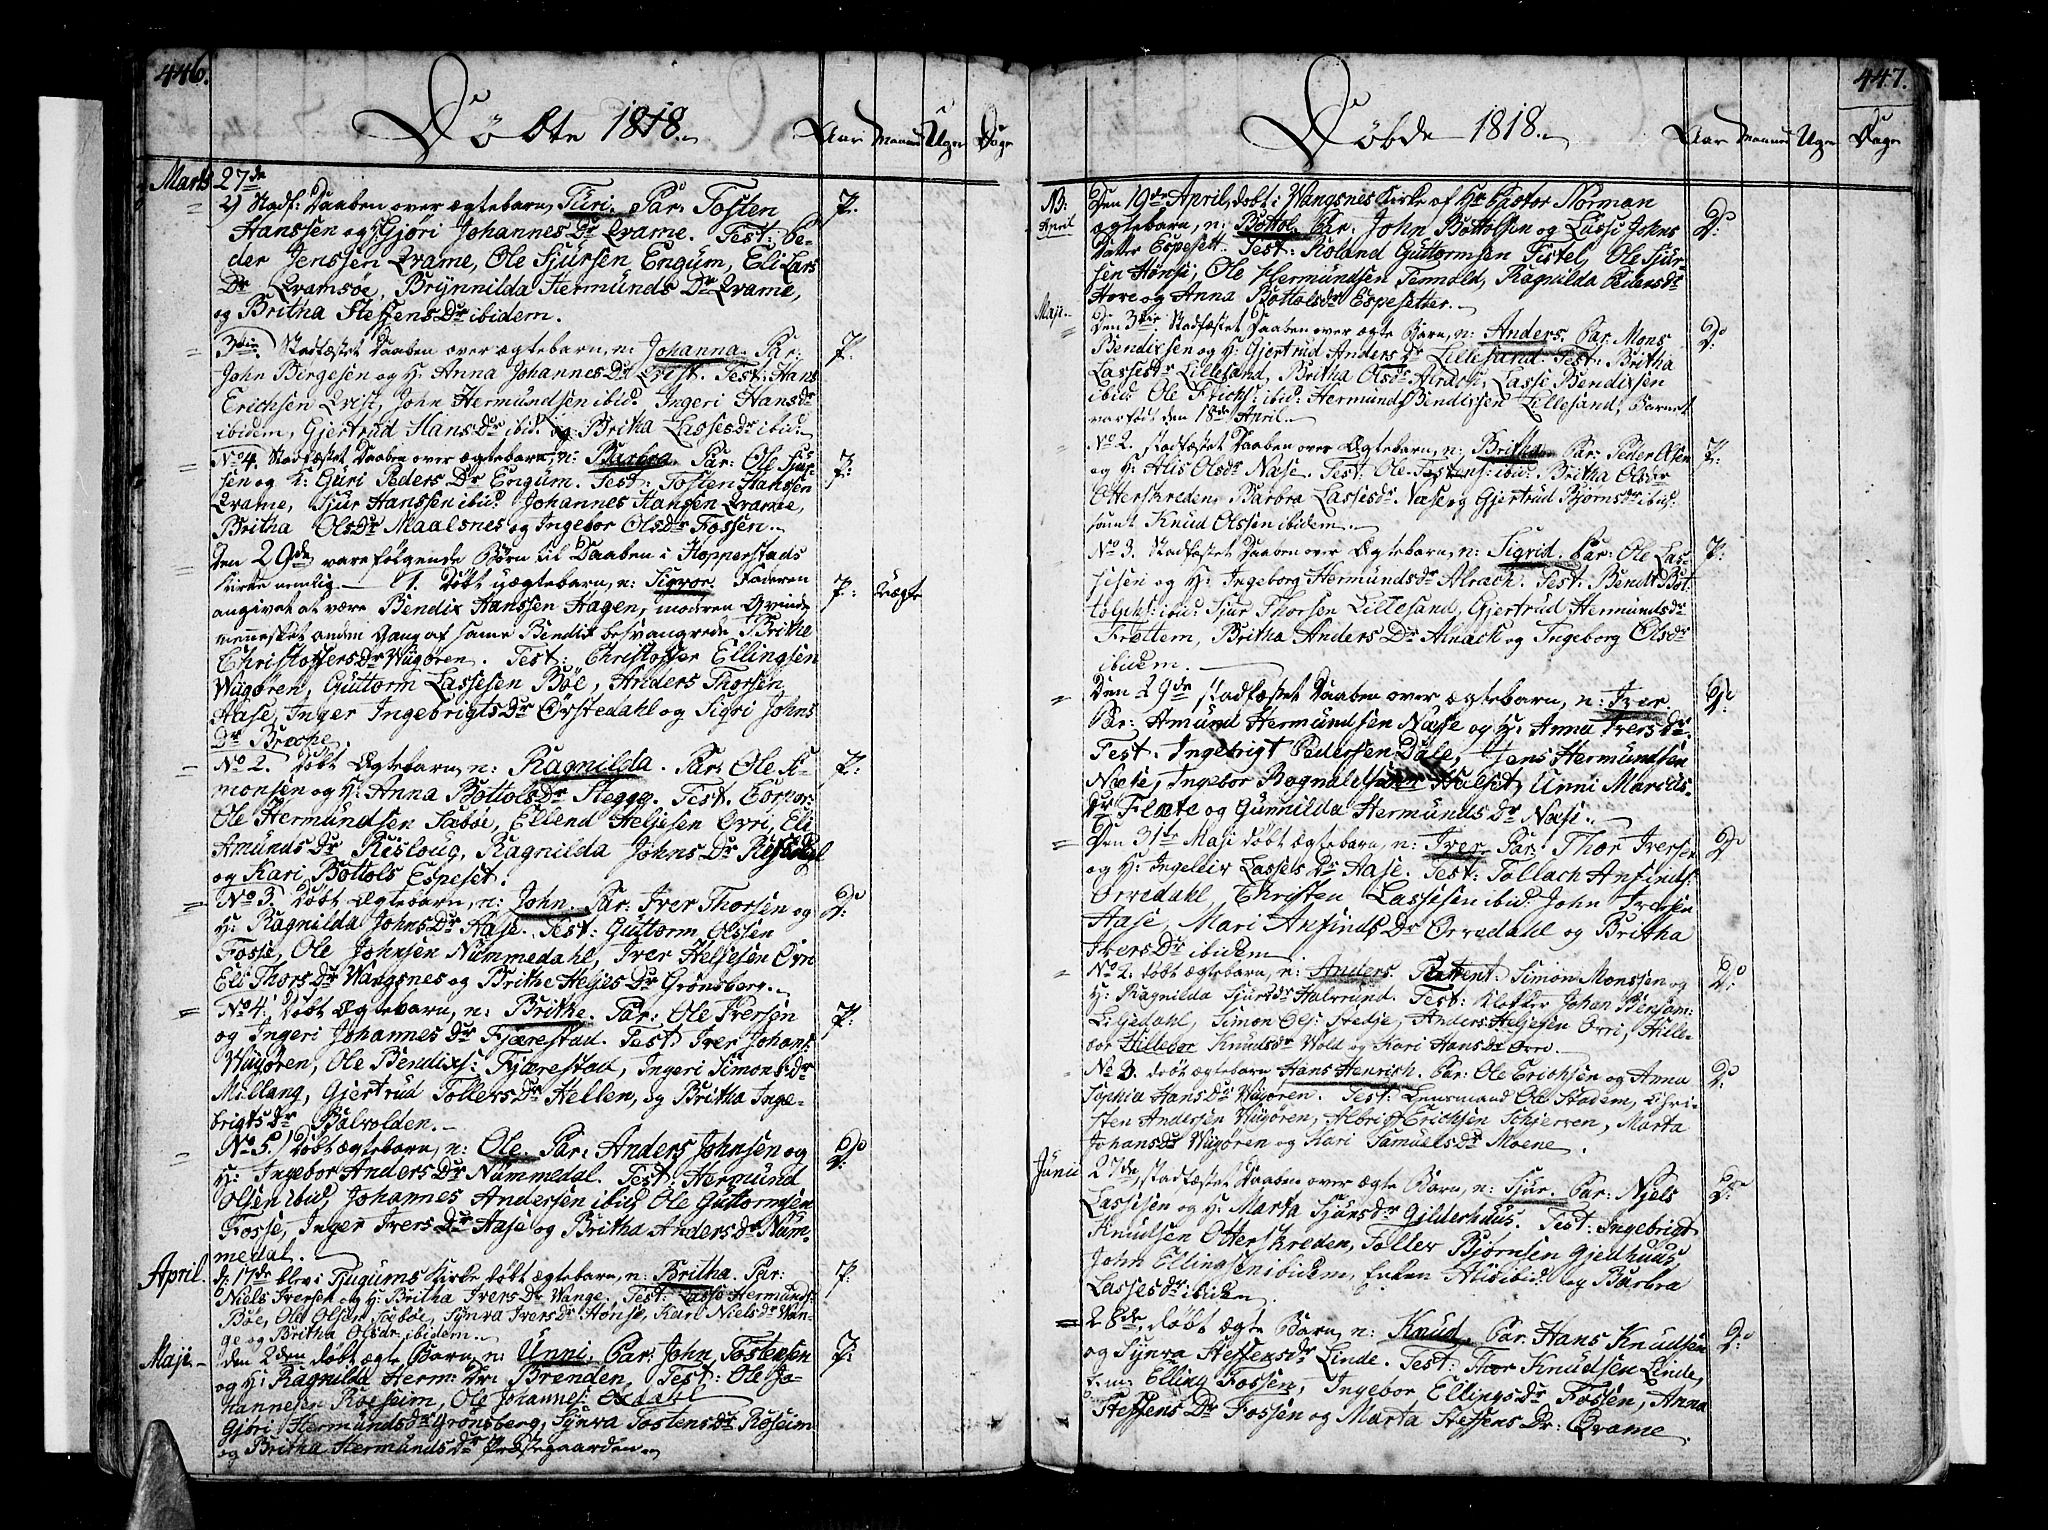 446.
Döbte 1818.
Aar Maaned Uger Dage
Marts 27de
2) Stadf: Daaben over ægtebarn, Turi. Par. Tosten 7.
Hansen og H: Gjöri Johannes Dr Qvame. Test: Pe-
der Jenssen Qvame, Ole Sjursen Engum, Eli Lars
Dr Qvamsöe, Brynnilda Hermunds Dr Qvame,
og Britha Steffens Dr ibidem.
3die. Stadfæstet Daaben over ægtebarn, n: Johanna. Par: 7.
John Birgesen og H: Anna Johannes Dr Qvist. Test: Hans
Erichsen Qvist, John Hermundsen ibid: Ingeri Hansdr
ibidem, Gjertrud Hans Dr ibid: og Britha Lassesdr ibidem
No 4. Stadfæstet Daaben over ægtebarn, n: Barbra. Par: Ole Sjur- 7.
sen og H: Guri Peders Dr Engum. Test: Tosten Hanssen
Qvame, Sjur Hanssen ibid: Johannes Hansen Qvame,
Britha Ols Dr Maalsnes og Ingebor Olsdr Fossen.
Den 29de vare fölgende Börn til Daaben i Hopperstads
Kirke nemlig 1. Döbt uægtebarn, n: Sigvor. Faderen 7: Uægte
angivet at være Bendix Hanssen Hagen, moderen Qvinde
mennesket anden Gang af samme Bendix besvangrede, Britha
Christoffers Dr Wigören. Test: Christoffer Ellingsen
Wigören, Guttorm Lassesen Böe, Anders Thorsen
Aase, Inger Ingebrigts Dr Örstedahl og Sigri Johns
Dr Brække
No 2. Döbt Ægtebarn, n: Ragnilda. Par: Ole Si- 7:
monsen og H: Anna Bottols Dr Stegge. Test:
Ole Hermundsen Sæböe, Ellend Heljesen Ovri, Eli
Amunds Dr Risloug, Ragnilda Johns Dr
og Kari Bottols Espeset.
No 3. Döbt Ægtebarn, n: John. Par: Iver Thorsen og D:
H: Ragnilda Johns Dr Aase. Test: Guttorm Olssen
Fosse, Ole Johnsen Nummedahl, Iver Heljesen Ovri
Eli Thors Dr Wangsnes og Brithe Heljes Dr Grönsberg.
No 4. Döbt Ægtebarn, n: Brithe. Par: Ole Iversen 7:
og Ingeri Johannes Dr Fjærestad. Test: Iver Johans:
Wigören, Ole Bendixs: Fjærestad, Ingeri Simonsdr
Millang, Gjertrud Tollers Dr Hellen, og Britha Inge-
brigts Dr Balvolden.
No 5. Döbt ægtebarn, n: Ole. Par: Anders Johnsen og D:
H: Ingebor Anders Dr Nummedal. Test: Hermund
Olsen ibid, Johannes Andersen ibid, Ole Guttormsen
Fosse, Inger Ivers Dr Aase og Britha Anders Dr Num-
medal.
April. D: 17de blev i Tugums Kirke döbt ægtebarn, n: Britha. Par: 7:
Niels Iversen og H: Britha Ivers Dr Wange. Test: Lasse Hermunds:
Böe, Ole Olsen Sæböe, Synva Ivers Dr Hönse, Kari Niels Dr Wan-
ge og Britha Olsdr ibidem.
Maji. den 2den döbt ægte Barn, n: Unni. Par: John Tostensen 7:
og H: Ragnilda Herm: Dr: Brenden. Test: Ole Jo-
hannesen Roeseim, Ole Johannes:
Gjöri Hermunds Dr Grönsberg, Synva Tostens Dr Roseim
og Britha Hermunds Dr Præstegaarden.
447.
Döbde 1818.
Aar Maaned Uger Dage
NB: April Den 19de April, dobt i Wangsnes Kirke af Hr Pastor Norman D:
ægtebarn, n: Bottol. Par: John Bottolsen og Lussi Johns
Datter Espesett. Test: Roland Guttormsen Fistel, Ole Sjur-
sen Hönsi, Ole Hermundsen Tennold, Ragnilda Pedersdr
Hove og Anna Bottolsdr Espesetter.
Maji. Den 3die: Stadfæstet Daaben over ægte Barn, n: Anders. Par: Mons D:
Bendixsen og H: Gjertrud Anders Dr Lillesand. Test: Britha
Lasses Dr Lillesand, Britha Olsdr Alrach, Lasse Bendixsen
ibid: Ole Erichs: ibid: Hermund Bendixsen Lillesand, Barnet
var födt den 18de April.
No 2. Stadfæstet Daaben over Ægtebarn, n: Britha. Par: Peder Olsen 7:
og H: Alis Olsdr Næse. Test: Ole Tostens: ibid: Britha Olsdr
Otterskreden, Barbra Lassesdr Næse og Gjertrud Björnsdr ibid:
samt Knud Olssen ibidem.
No 3. Stadfæstet Daaben over Ægtebarn, n: Sigrid. Par: Ole Las- 7:
sesen og H: Ingeborg Hermundsdr Alrach. Test: Bendt Bot-
tolphs: ibid: Sjur Thorsen Lillesand, Gjertrud Hermundsdr
Frettem, Britha Anders Dr Alrach og Ingeborg Olsdr
ibidem.
Den 29de Stadfæstet Daaben over ægtebarn, n: Iver. D:
Par: Amund Hermundsen Næse og H: Anna Ivers Dr.
Test: Ingebrigt Pedersen Dale, Jens Hermundsen
Næse, Ingebor Halset, Unni
Dr Flæte og Gunnilda Hermunds Dr Næsi.
Den 31te Maji döbt ægtebarn, n: Iver. Par: Thor Iversen D:
og H: Ingeleiv Lasses Dr Aase. Test: Tollach Anfinds:
Orvedahl, Christen Lassesen ibid: John Iversen
Aase, Mari Anfinds Dr Orvedahl og Britha
Ivers Dr ibidem.
No 2. döbt ægtebarn, n: Anders. Parent. Simon Monssen og D:
H: Ragnilda Sjursdr Halsrund. Test: Klokker Johan Benjam:
Liljedahl, Simon Ols: Stedje, Anders Heljesen Ovri, Hille-
bor Hillebor Knudsdr Wold og Kari Hansdr Ovri.
No 3. döbt ægtebarn Hans Henrich. Par: Ole Erichsen og Anna D:
Sophia Hansdr Wigören. Test: Lensmand Ole Stadem, Chri-
sten Andersen Wigören, Albrigt Erichsen Schjerven, Marta
Johansdr Wigören og Kari Samuelsdr Moene.
Junii 27de, Stadfæstet Daaben over ægte Barn, n: Sjur. Par: Njels D:
Lassesen og H: Marta Sjursdr Gilderhuus. Test: Ingebrigt
Knudsen Otterskreden, Toller Björnsen Gjelhuus,
John Ellingsen ibidem, Enken ibid: og Barbra
Lassesdr ibidem.
28de, döbt ægte Barn, n: Knud. Par: Hans Knudsen D:
og Synva Steffensdr Linde. Test: Thor Knudsen Linde,
Elling Fossen, Ingebor Ellings Dr Fossen, Anna
Steffens Dr Fossen og Marta Steffens Dr: Qvame.